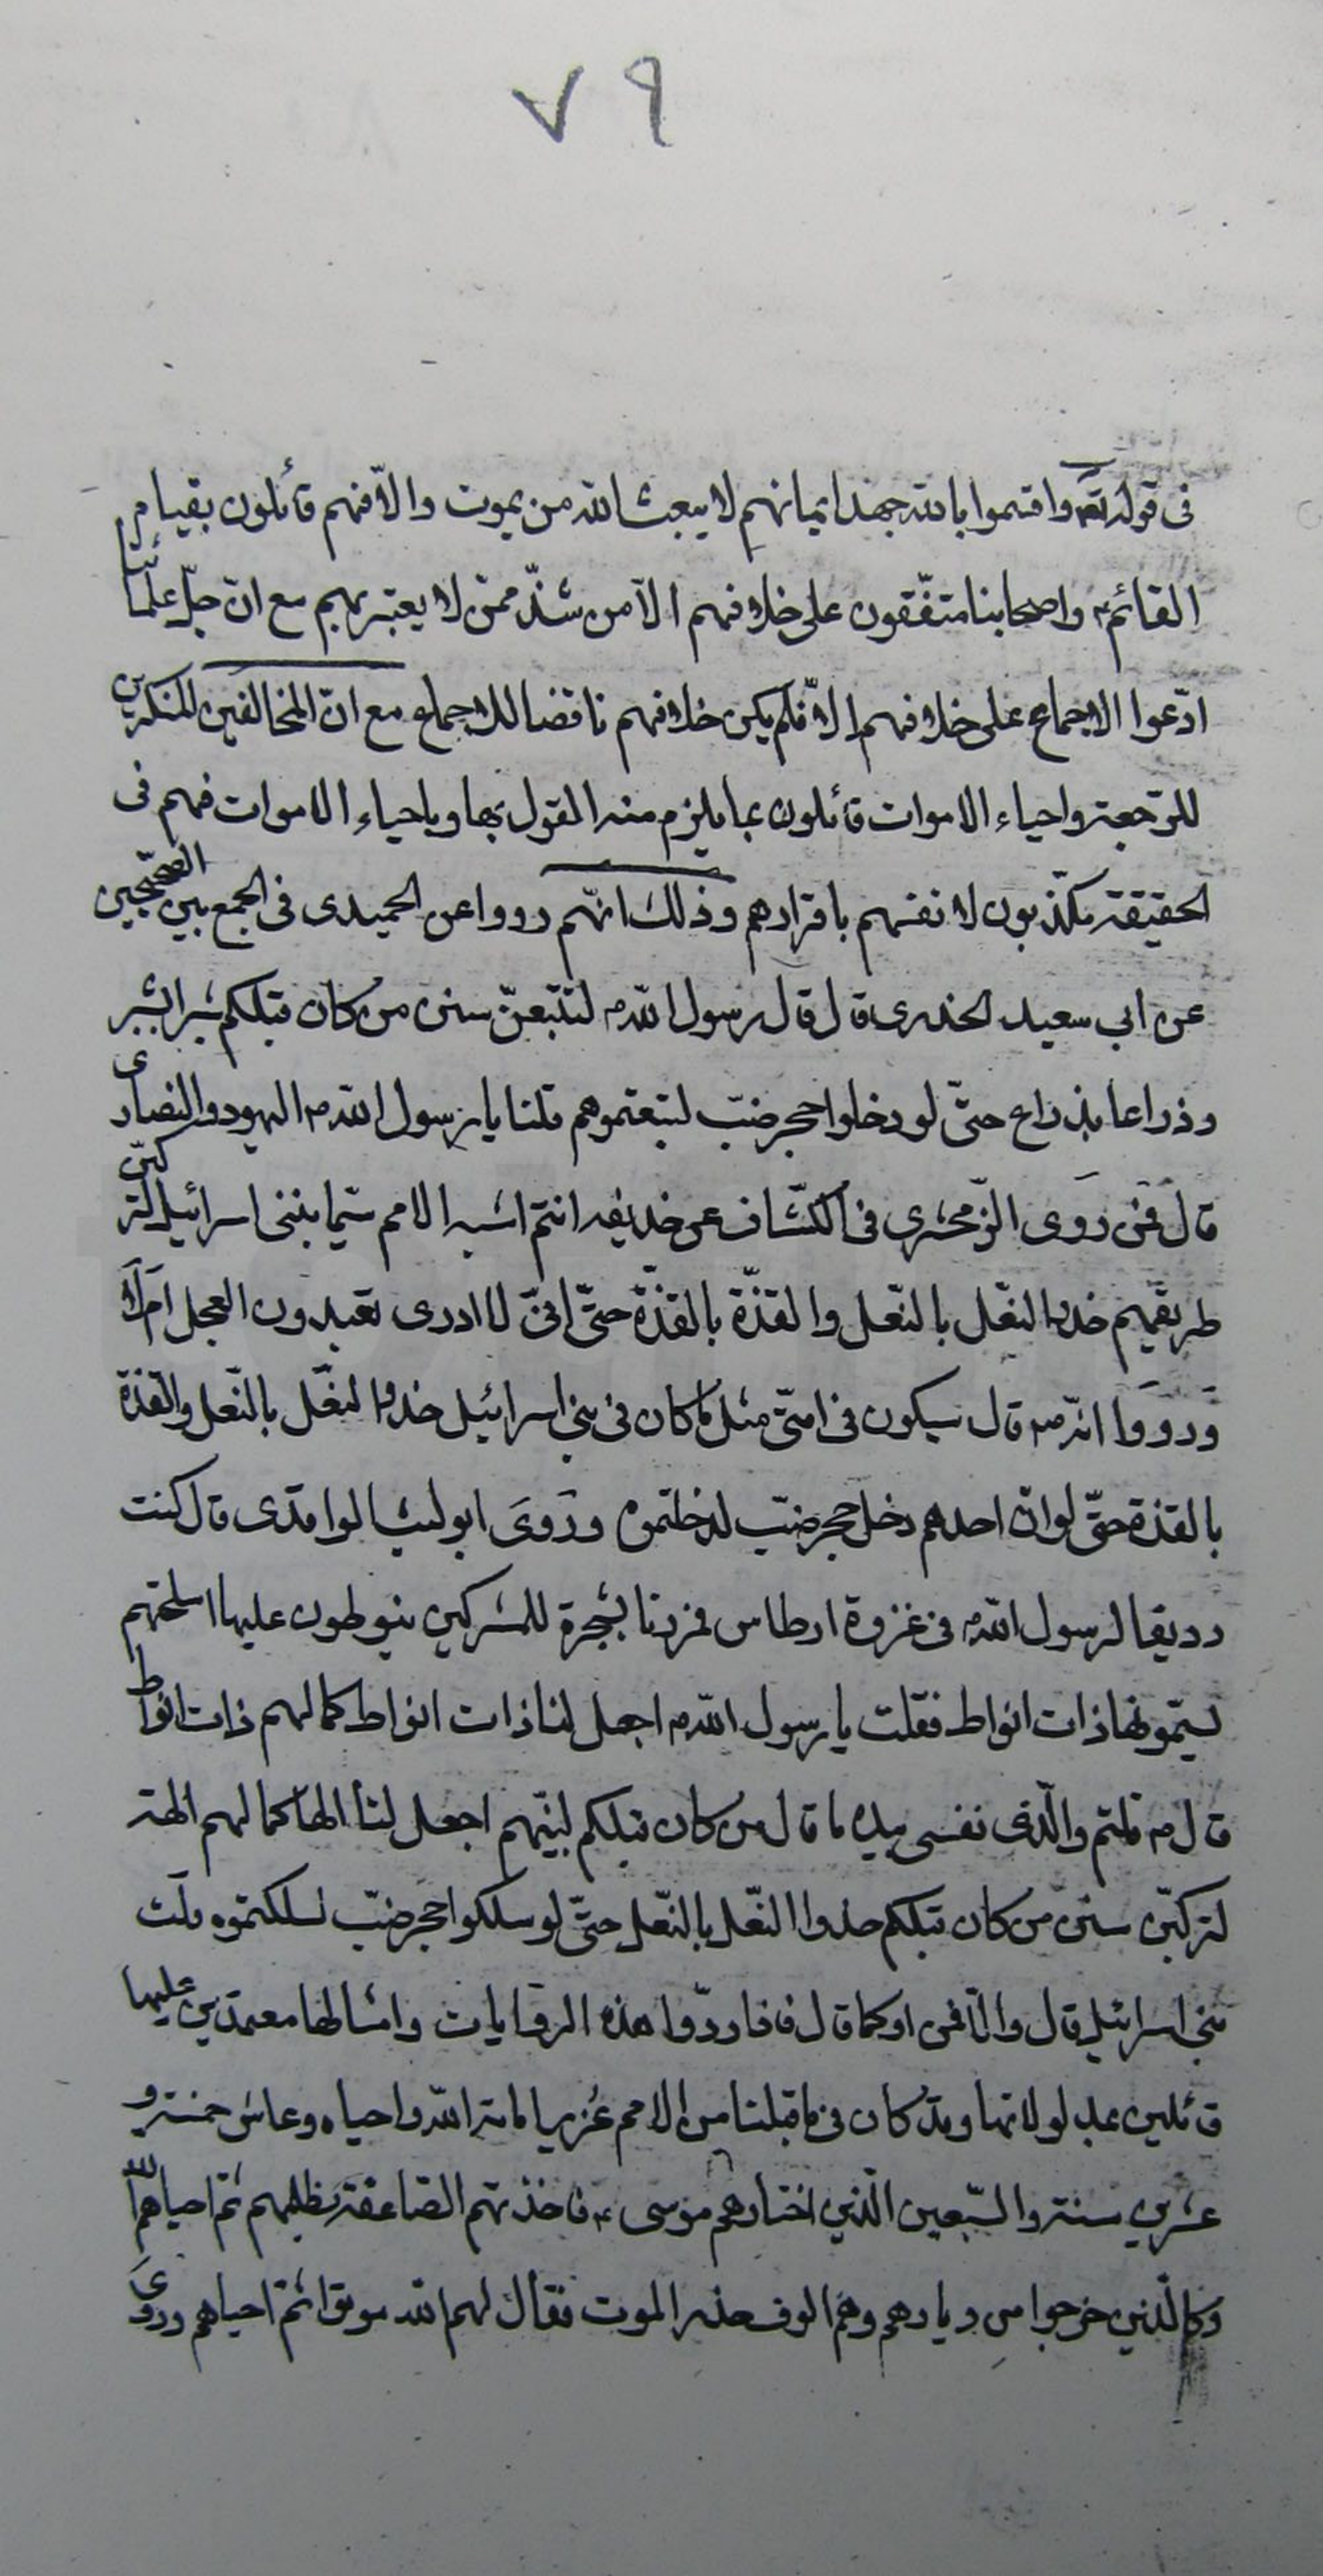 ٧٩
فى قوله تعالى واقسموا بالله جهد ايمانهم لا يبعث الله من يموت والّا فهم قائلون بقيام
القائم ع واصحابنا متّفقون على خلافهم الّا من شذّ ممّن لا يعتبر بهم مع انّ جلّ علمائنا
ادّعوا الاجماع على خلافهم الّا فلم يكن خلافهم ناقضا للاجماع مع انّ المخالفين المنكرين
للرّجعة واحياء الاموات قائلون بما يلزم منه القول بها وباحياء الاموات فهم فى
الحقيقة مكذّبون لانفسهم باقرارهم وذلك انّهم رووا عن الحميدى فى الجمع بين الصّحيحين
عن ابى سعيد الخدرى قال قال رسول اللّه ص لتتّبعنّ سنن من كان قبلكم شبرا بشبر
وذراعا بذراع حتّى لو دخلوا حجر ضبّ لتبعتموهم قلنا يا رسول اللّه ص اليهود والنصارى
قال فمن روى الزّمخشرى فى الكشّاف عن حذيفه انتم اشبه الامم سيما ببنى اسرائيل لتركبنّ
طريقهم حذو النّعل بالنّعل والقذّة بالقذّة حتّى انّى لا ادرى تعبدون العجل ام لا
ورووا انّه ص قال سيكون فى امتى مثل ما كان فى بنى اسرائيل حذو النّعل بالنّعل والقذة
بالقذة حتّى لو انّ احدهم دخل حجر ضبّ لدخلتموه وروى ابو ليث الواقدى قال كنت
رديفا لرسول اللّه ص فى غزوة ارطاس فمررنا بشجرة للمشركين ينوطون عليها اسلحتهم
يسمّونها ذات انواط فقلت يا رسول اللّه ص اجعل لنا ذات انواط كما لهم ذات انواط
قال ص قلتم والّذى نفسى بيده ما قال من كان قبلكم لنبيّهم اجعل لنا الها كما لهم الهة
لتركبنّ سنن من كان قبلكم حذوا النّعل بالنّعل حتّى لو سلكوا حجر ضبّ لسلكتموه قلت
بنى اسرائيل قال والّا فمن او كما قال فاذا ردّوا هذه الرّوايات وامثالها معتمدين عليها
قائلين بمدلولاتها وقد كان فى ما قبلنا من الامم عُزير اماته اللّه واحياه وعاش خمسة و
عشرين سنة والسّبعين الّذين اختارهم موسى ع فاخذتهم الصّاعقة بظلمهم ثمّ احياهم اللّه
وكالّذين خرجوا من ديارهم وهم الوف حذر الموت فقال لهم الله موتوا ثمّ احياهم وروى